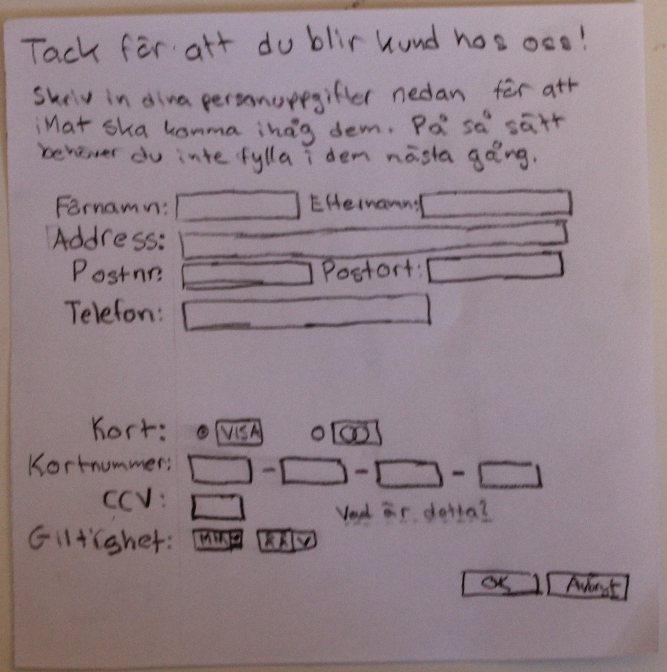 Tack för att du blir kund hos oss!
Skriv in dina personuppgifter nedan för att
iMat ska komma ihåg dem. På så sätt
behöver du inte fylla i dem nästa gång.
Förnamn: Efternamn:
Address:
Postnr: Postort:
Telefon:
Kort: VISA
Kortnummer: - - -
CCV: Vad är detta?
Giltighet: MM ÅÅ
OK Avbryt